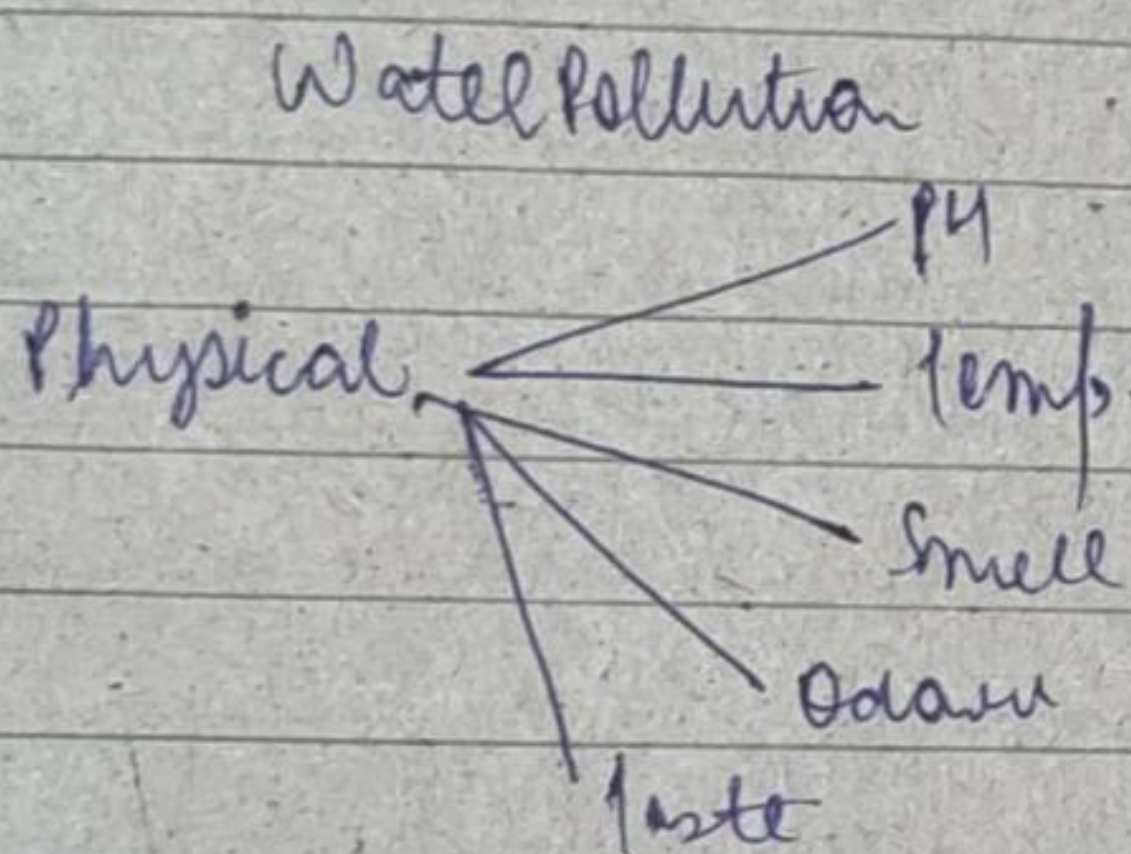 Water Pollution
PH
Physical
Temp.
Smell
Odour
Taste